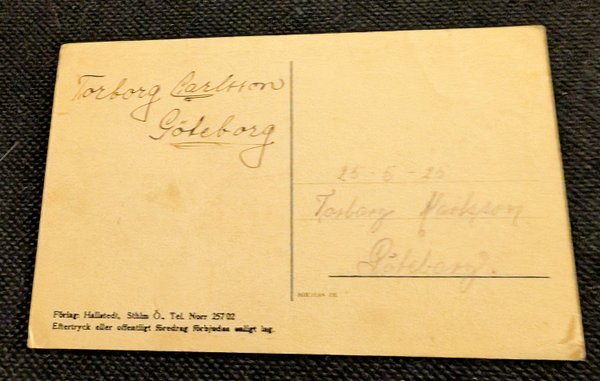 Torborg Carlsson
Göteborg
25-5-25
Torborg
Göteborg.
Förlag: Hallstedt, Sthlm Ö. Tel. Norr 257 02
Eftertryck eller offentligt föredrag förbjudes enligt lag.